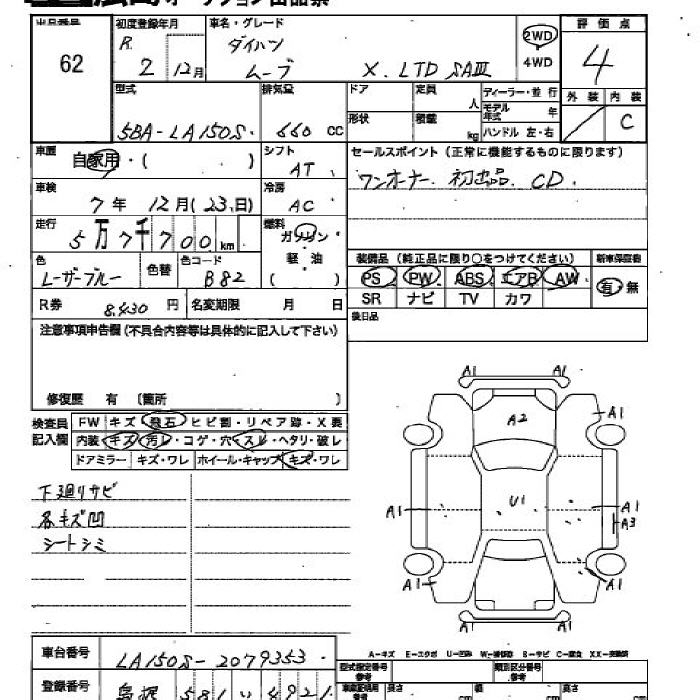 出品番号 初度登録年月 車名・グレード 評価点
62 R 2 12月 ダイハツ ムーブ X. LTD SAⅢ 2WD 4WD 4
外装 内装
C
型式 排気量 ドア 定員 人 ディーラー・並行
5BA-LA150S. 660 CC 形状 積載 kg モデル年式 年
ハンドル 左・右
車歴 自家用・( ) シフト AT セールスポイント(正常に機能するものに限ります)
ワンオーナー. 初出品. CD.
車検 7年 12月(23日) 冷房 AC
走行 5万7千700km 燃料 ガソリン 軽油 ( )
色 レーザーブルー 色替 色コード B82
装備品(純正品に限り○をつけてください) 新車保証書
PS PW ABS エアB AW 有 無
SR ナビ TV カワ
R券 8,430円 名変期限 月 日
後日品
注意事項申告欄(不具合内容等は具体的に記入して下さい)
修復歴 有 〔箇所 〕
検査員記入欄 FW キズ・飛石・ヒビ割・リペア跡・X要
内装・キズ・汚レ・コゲ・穴・スレ・ヘタリ・破レ
ドアミラー キズ・ワレ ホイール・キャップ キズ・ワレ
下廻りサビ
各キズ凹
シートシミ
A1 A1
A2 A1
A1 U1 A1
A3
A1 A1
A-キズ E-エクボ U-凹み W-補修跡 S-サビ C-腐食 XX-交換済
車台番号 LA150S-2079353.
型式指定番号 類別区分番号
登録番号 島根 581
長さ cm 幅 cm 高さ cm